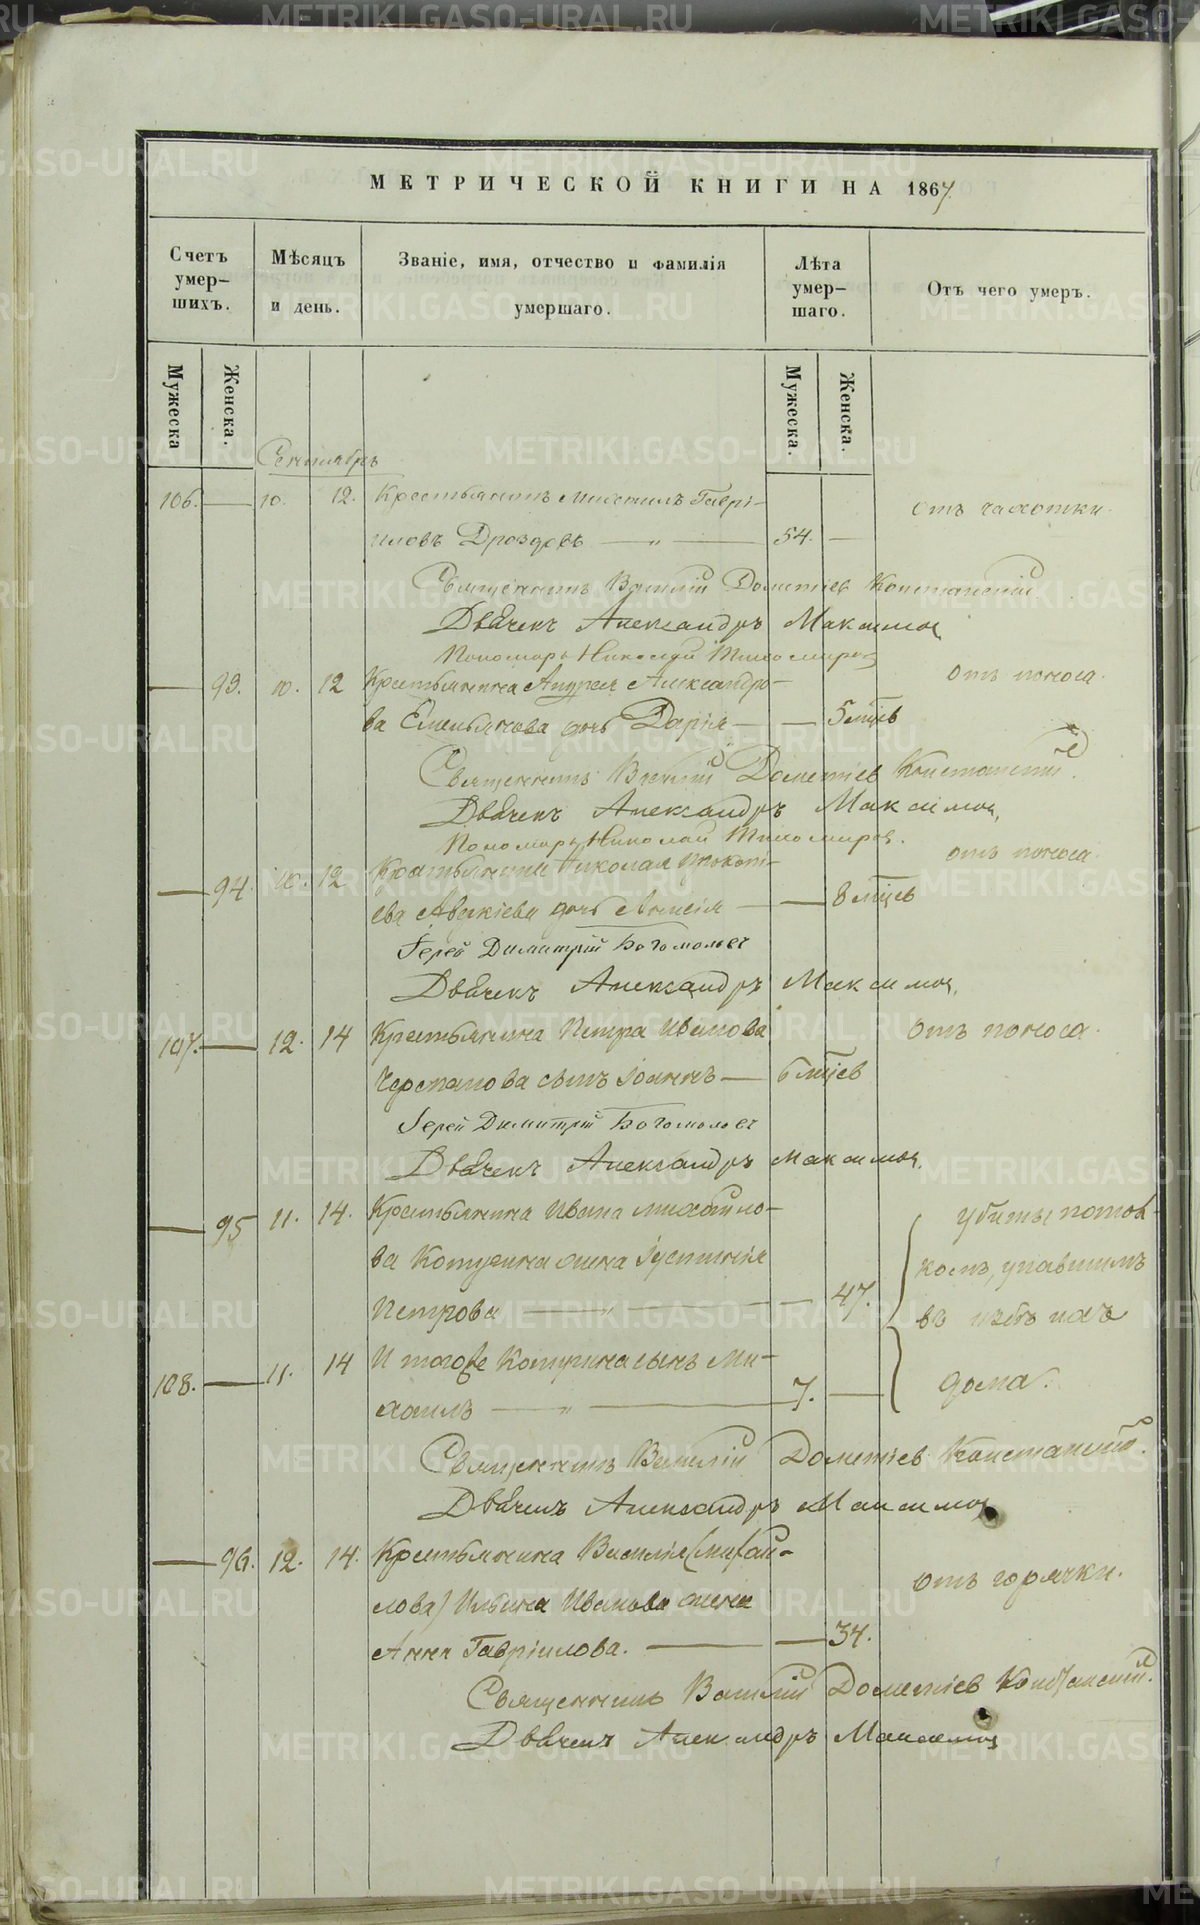 МЕТРИЧЕСКОЙ КНИГИ НА 1867
Счетъ умер-шихъ.
Мѣсяцъ и день.
Званіе, имя, отчество и фамилія умершаго.
Лѣта умер-шаго.
Отъ чего умеръ.
Мужеска
Женска.
Мужеска.
Женска.
Сентябрь
106. — 10. 12. Крестьянинъ Михаилъ Гаврі- отъ чахотки.
иловъ Дроздовъ — „ — 54. —
Священникъ Василій Дометіев Констанскій
Дьячекъ Александръ Максимов
Пономарь Николай Тихомиров
— 93. 10. 12 Крестьянина Андрея Александро- отъ поноса.
ва Емельянова дочь Дарія — — 5 мцев
Священникъ Василій Дометіев Констанскій.
Дьячекъ Александръ Максимов,
Пономарь Николай Тихомиров.
— 94. 10. 12 Крестьянина Николая Прокопі- отъ поноса.
ева Авдкіева дочь — — 8 мцевъ
Іерей Димитрій Богомолов
Дьячекъ Александръ Максимов,
107. — 12. 14 Крестьянина Петра Иванова отъ поноса.
Черепанова сынъ Іоаннъ — 6 мцев
Іерей Димитрій Богомолов
Дьячекъ Александръ Максимов,
— 95 11. 14. Крестьянина Ивана Михайло- убиты потол-
ва Котугина жена Іустинія комъ, упавшимъ
Петрова — „ — — 47. въ избѣ ихъ
108. — 11. 14 И тогоже Котугина сынъ Ми- дома.
хаилъ — „ — 7. —
Священникъ Василій Дометіев Констанскій.
Дьячекъ Александръ Максимов
— 96. 12. 14. Крестьянина Василія (Михай- отъ горячки.
лова) Ильина Иванова жена
Анна Гавріилова. — — 34.
Священникъ Василій Дометіев Констанскій.
Дьячекъ Александръ Максимов
METRIKI.GASO-URAL.RU